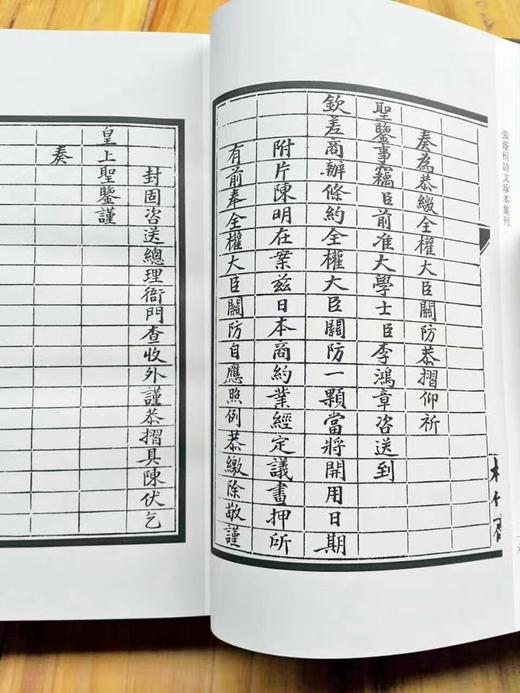 張蔭桓詩文珍本集刊
奏為恭繳全權大臣關防恭摺仰祈
聖鑒事竊臣前准大學士臣李鴻章咨送到
欽差商辦條約全權大臣關防一顆當將開用日期
附片陳明在案茲日本商約業經定議書押所
有前奉全權大臣關防自應照例恭繳除敬謹
封固咨送總理衙門查收外謹恭摺具陳伏乞
皇上聖鑒謹
奏